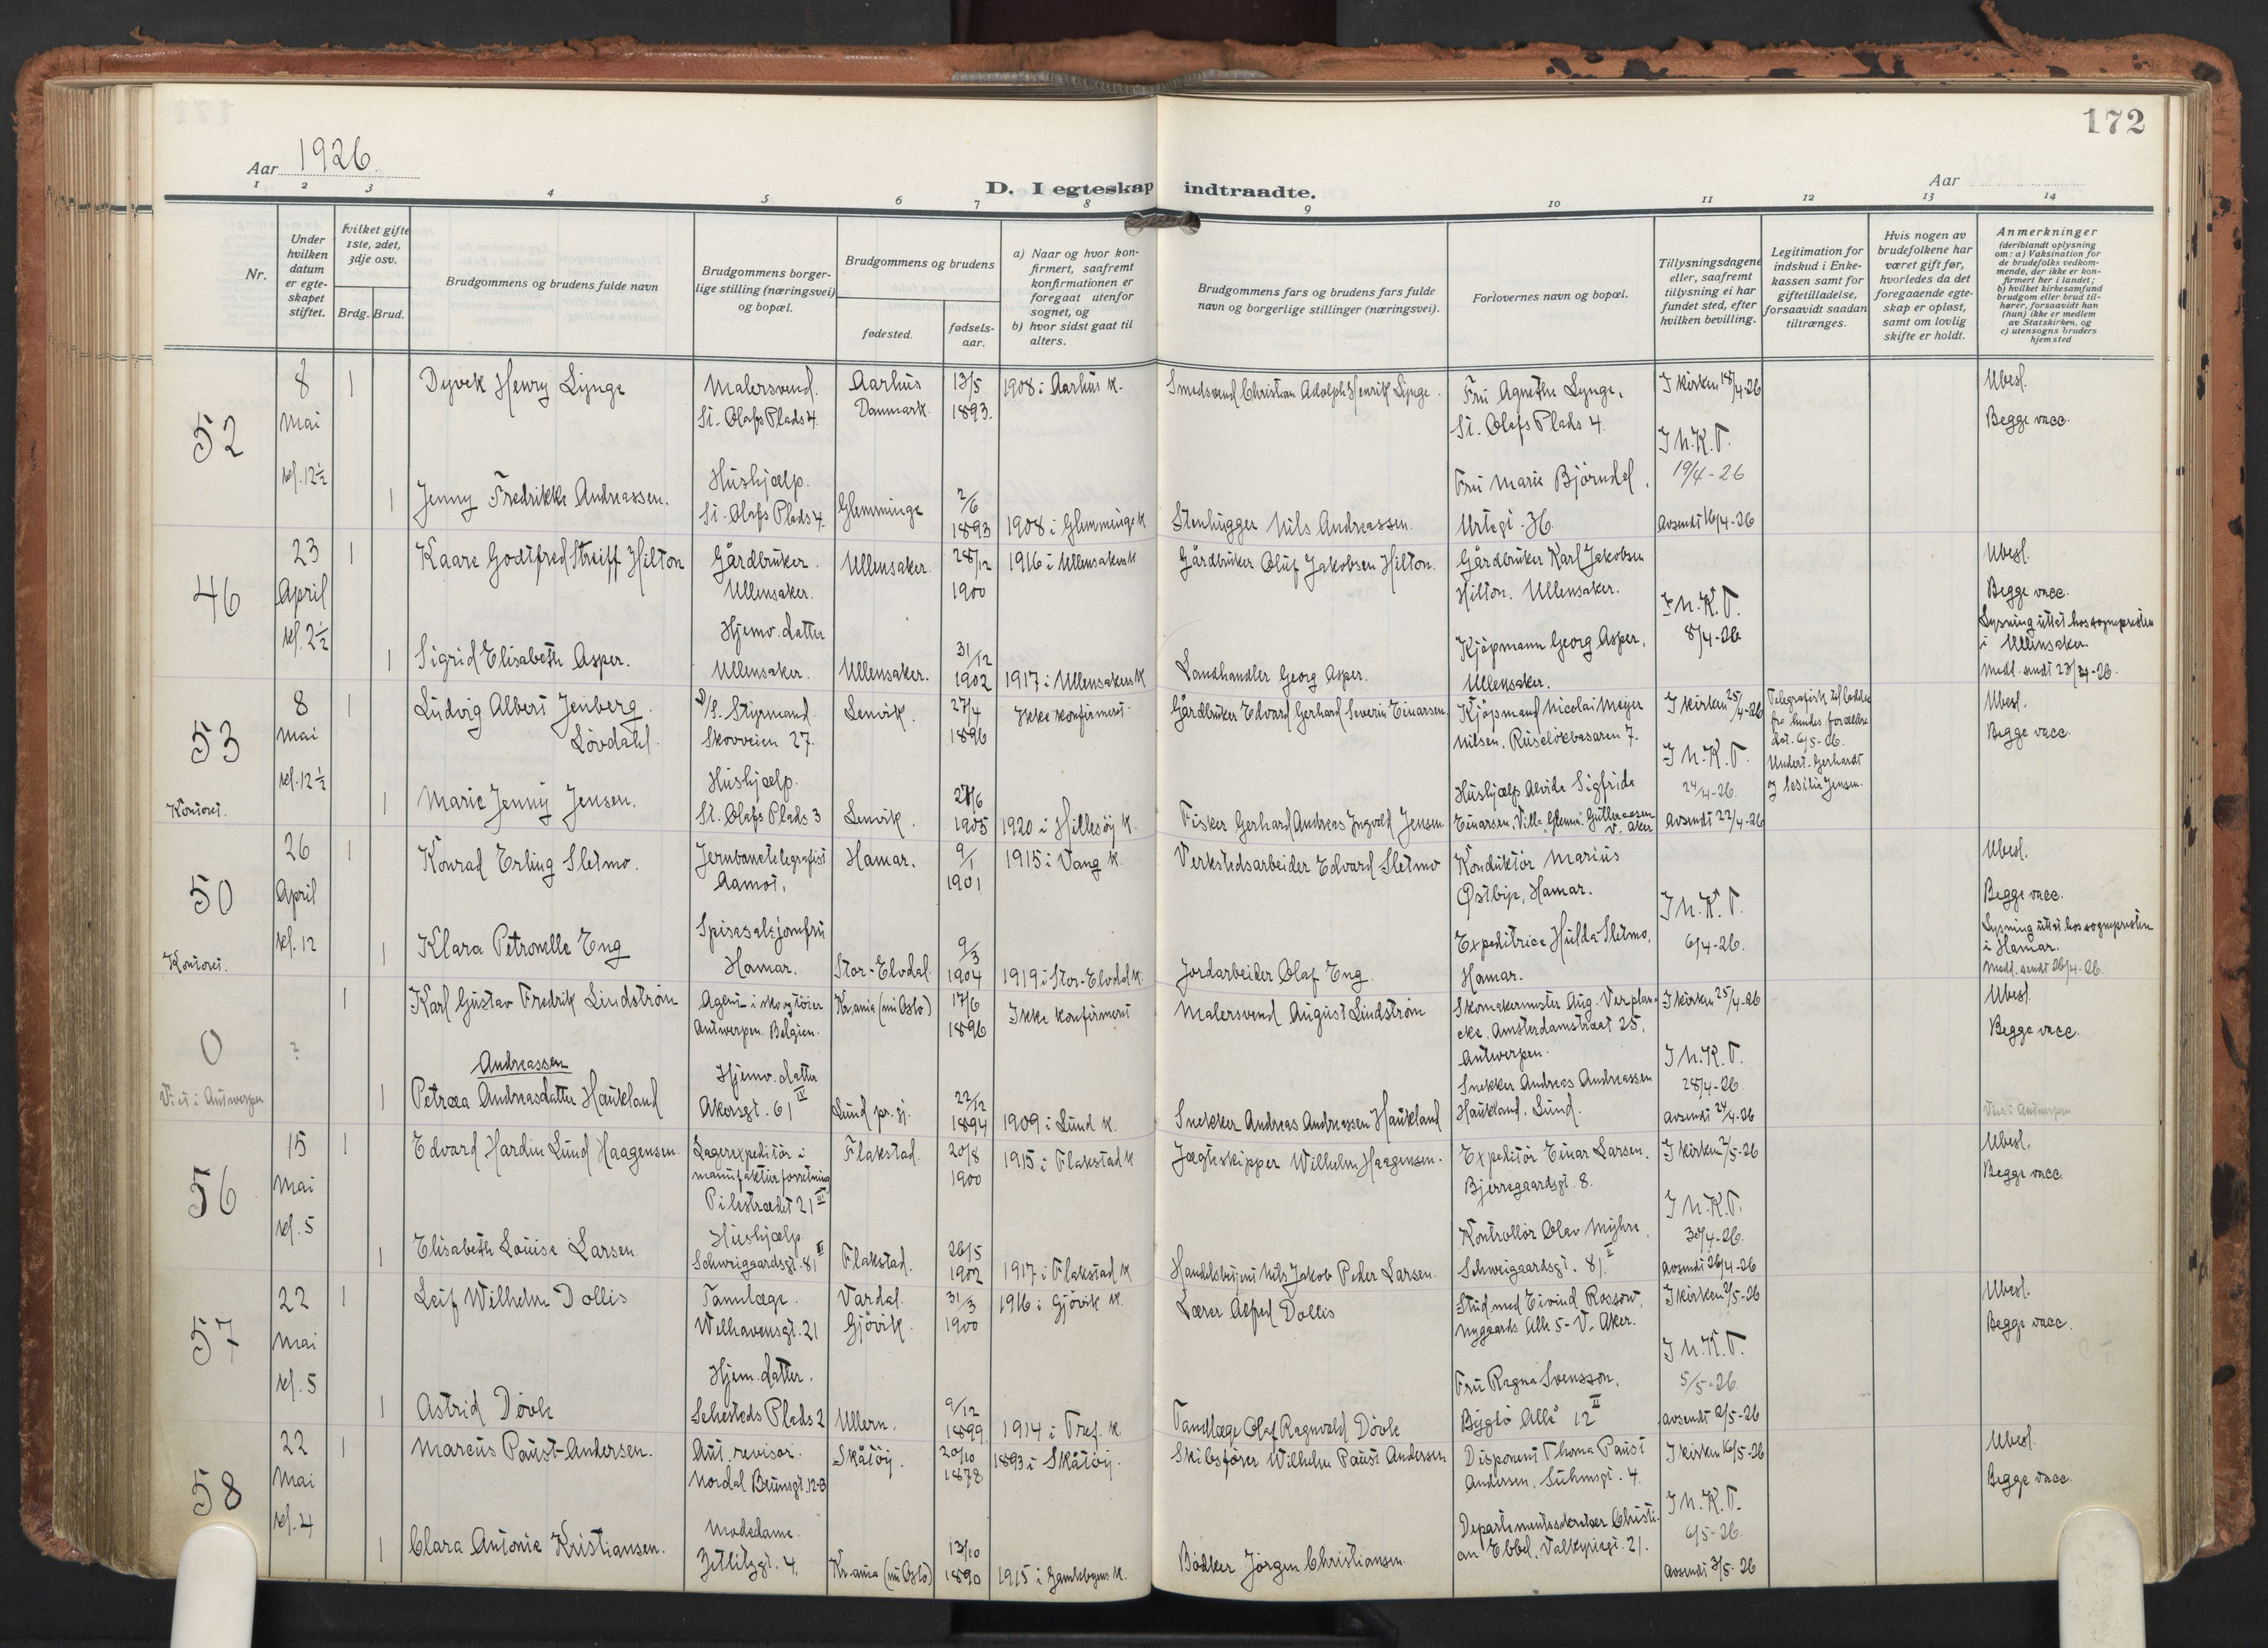 172
Aar 1926.
D. I egteskap indtraadte.
Aar
1 2 3 4 5 6 7 8 9 10 11 12 13 14
Nr.
Under hvilken datum er egteskapet stiftet.
Hvilket gifte 1ste, 2det, 3dje osv.
Brdg. Brud.
Brudgommens og brudens fulde navn
Brudgommens borgerlige stilling (næringsvei) og bopæl.
Brudgommens og brudens
fødested.
fødselsaar.
a) Naar og hvor konfirmert, saafremt konfirmationen er foregaat utenfor sognet, og
b) hvor sidst gaat til alters.
Brudgommens fars og brudens fars fulde navn og borgerlige stillinger (næringsvei).
Forlovernes navn og bopæl.
Tillysningsdagene eller, saafremt tillysning ei har fundet sted, efter hvilken bevilling.
Legitimation for indskud i Enkekassen samt for giftetilladelse, forsaavidt saadan tiltrænges.
Hvis nogen av brudefolkene har været gift før, hvorledes da det foregaaende egteskap er opløst, samt om lovlig skifte er holdt.
Anmerkninger
(deriblandt oplysning om: a) Vaksination for de brudefolks vedkommende, der ikke er konfirmert her i landet; b) hvilket kirkesamfund brudgom eller brud tilhører, forsaavidt han (hun) ikke er medlem av Statskirken, og c) utensogns bruders hjemsted
52
8 Mai kl. 12½
1 Dyvek Henry Lynge
Malersvend.
St. Olafs Plads 4.
Aarhus Danmark.
13/5 1893.
1908 i Aarhus k.
Smedsvend Christian Adolph Henrik Lynge.
Fru Agnethe Lynge,
St. Olafs Plads 4.
I kirken 18/4-26
I N.K.T.
19/4-26
Avsendt 16/4-26
Ubesl.
Begge vacc.
1 Jenny Fredrikke Andreassen.
Hushjælp.
St. Olafs Plads 4.
Glemminge
2/6 1893
1908 i Glemminge k
Stenhugger Nils Andreassen.
Fru Marie Björndal,
46
23 April kl. 2½
1 Kaare Godtfred Streiff Hilton
Gårdbruker.
Ullensaker.
Ullensaker.
28/12 1900
1916 i Ullensakers k
Gårdbruker Oluf Jakobsen Hilton.
Gårdbruker Karl Jakobsen
Hilton. Ullensaker.
I N.K.T.
8/4-26
Ubesl.
Begge vacc.
Lysning uttat hos sognepresten
i Ullensaker.
Medl. sendt 23/4-26.
1 Sigrid Elisabeth Asper.
Hjemv. datter
Ullensaker.
Ullensaker.
31/12 1902
1917 i Ullensakers k
Landhandler Georg Asper.
Kjöpmann Georg Asper,
Ullensaker.
53
8 Mai kl. 12½
Kontoret.
1 Ludvig Albert Jenberg
Lövdahl.
Styrmand.
Skovveien 27.
Lenvik.
27/4 1896
Ikke konfirmert.
Gårdbruker Edvard Gerhard Severin Einarsen
Kjöpmand Nicolai Meyer
Nilsen. Ruselökbasaren 7.
I kirken 25/4-26
I N.K.T.
24/4-26.
Avsendt 22/4-26
Telegrafisk
fra hendes forældre
dat. 6/5-26.
Undert. Gerhardt
Jensen.
Ubesl.
Begge vacc.
1 Marie Jenny Jensen.
Hushjælp.
St. Olafs Plads 3
Lenvik.
27/6 1905
1920 i Hillesöy k.
Fisker Gerhard Andreas Ingvald Jensen
Hushjælp Alvida Sigfrida
Einarsen, Villa
V. Aker
50
26 April kl. 12
Kontoret.
1 Konrad Erling Sletmo.
Jernbanetelegrafist
Aamot.
Hamar.
9/1 1901
1915 i Vang k.
Verkstedsarbeider Edvard Sletmo
Konduktör Marius
Østbye, Hamar.
I N.K.T.
6/4-26.
Ubesl.
Begge vacc.
Lysning uttat hos sognepresten
i Hamar.
Medl. sendt 26/4-26.
1 Klara Petronelle Eng
Spisesalsjomfru
Hamar.
Stor-Elvdal.
9/3 1904
1919 i Stor-Elvdal k.
Jordarbeider Olaf Eng.
Expeditrice Hulda Sletmo,
Hamar.
0
?
Viet i Antwerpen
1 Karl Gustav Fredrik Lindström
Agent i skogtöier
Antwerpen. Belgien.
Kr.ania (nu Oslo)
17/6 1896
Ikke konfirmert
Malersvend August Lindström
Skomakermester Aug. Verplancke. Amsterdamstraat 25,
Antwerpen.
I kirken 25/4-26
I N.K.T.
28/4-26
Avsendt 24/4-26
Ubesl.
Begge vacc.
Viet i Antwerpen
Andreassen
1 Petræa Andreasdatter Haukland
Hjemv. datter
Akersgt. 61 IV
Lund pr.gj.
22/12 1894
1909 i Lund k.
Snekker Andreas Andreassen Haukland
Snekker Andreas Andreassen
Haukland. Lund.
56
15 Mai kl. 5
1 Edvard Hardin Lund Haagensen.
Lagerexpeditör i
manufakturforretning
Pilestrædet 21 III
Flakstad.
20/8 1900
1915 i Flakstad k
Jægteskipper Wilhelm Haagensen.
Expeditör Einar Larsen.
Bjerregaardsgt. 8.
I kirken 2/5-26
I N.K.T.
30/4-26.
Avsendt 26/4-26
Ubesl.
Begge vacc.
1 Elisabeth Louise Larsen
Hushjælp.
Schweigaardsgt. 81 II
Flakstad.
26/5 1902
1917 i Flakstad k
Handelsbetjent Nils Jakob Peder Larsen.
Kontrollör Olav Myhre,
Schweigaardsgt. 81 II
57
22 Mai kl. 5
1 Leif Wilhelm Dollis
Tannlæge.
Welhavensgt. 21
Vardal. Gjövik.
31/3 1900
1916 i Gjövik k.
Lærer Alfred Dollis
Stud. med Eivind Rossow,
Nygaards Alle 5 - V. Aker.
I kirken 2/5-26
I N.K.T.
5/5-26.
Avsendt 2/5-26
Ubesl.
Begge vacc.
1 Astrid Dövle
Hjem. datter.
Sehesteds Plads 2
Ullern.
9/12 1899
1914 i Tref. k
Tandlæge Olaf Ragnvald Dövle
Fru Ragna Svensson,
Bygdö Allé 12 II
58
22 Mai kl. 4
1 Marcus Paust-Andersen.
Aut. revisor.
Nordal Brunsgt. 12-B
Skåtöy.
20/10 1878
1893 i Skåtöy.
Skibsförer Wilhelm Paust Andersen
Disponent Thoma Paust
Andersen, Suhmsgt. 4.
I kirken 16/5-26
I N.K.T.
6/5-26.
Avsendt 3/5-26
Ubesl.
Begge vacc.
1 Clara Antonie Kristiansen.
Modedame.
Zetlitzgt. 4.
Kr.ania (nu Oslo)
13/10 1890
1915 i Gamlebyens k.
Bödker Jörgen Christiansen.
Departementssekretær Christian Ebbel, Valkyriegt. 21.